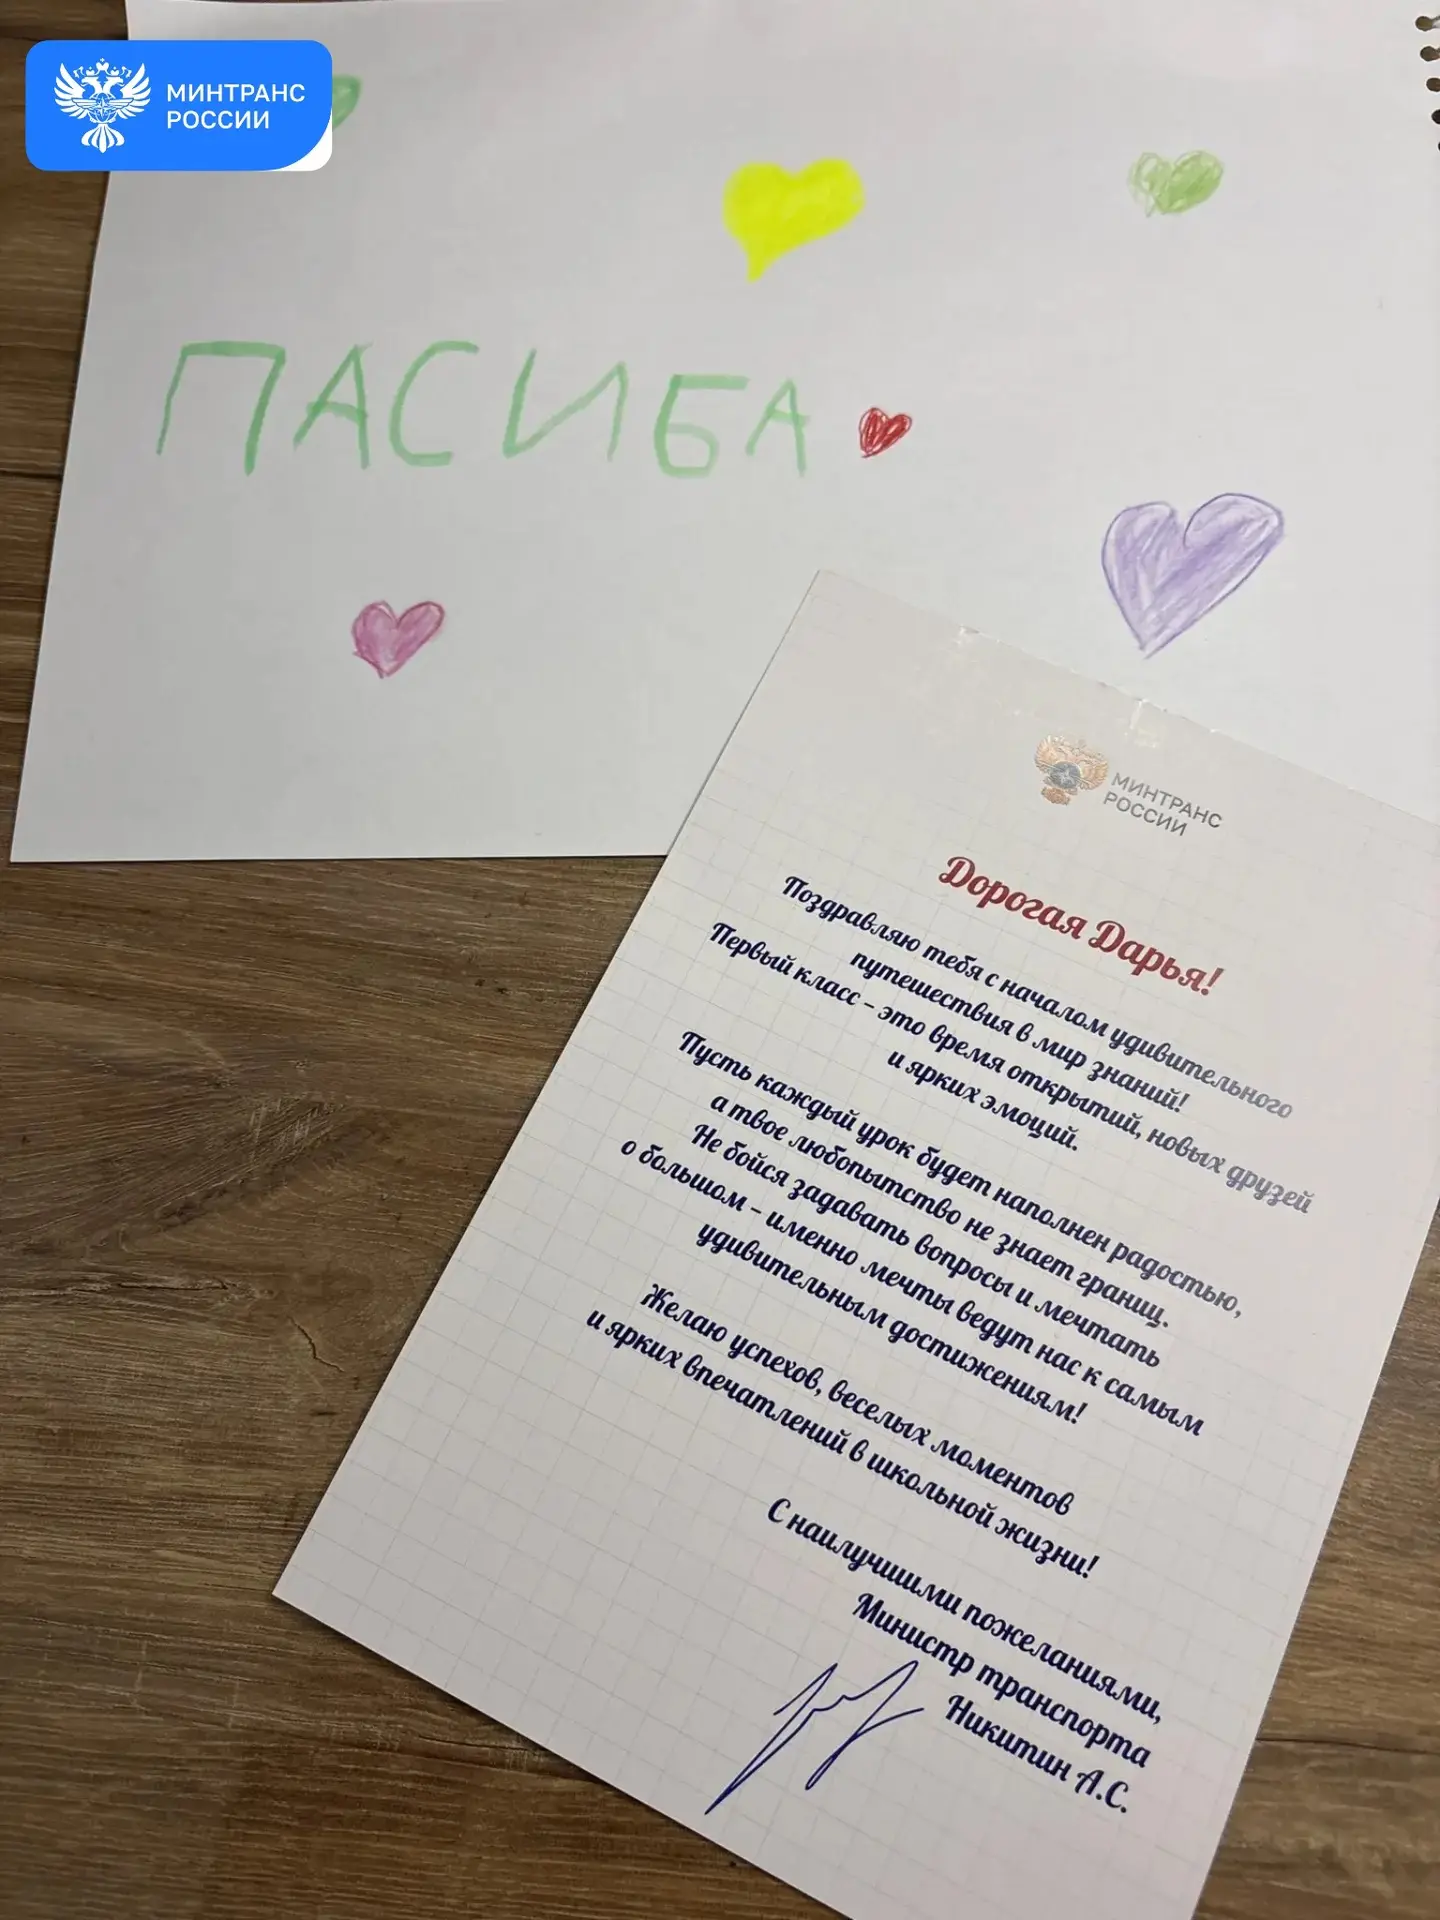 МИНТРАНС
РОССИИ
ПАСИБА
МИНТРАНС
РОССИИ
Дорогая Дарья!
Поздравляю тебя с началом удивительного
путешествия в мир знаний!
Первый класс – это время открытий, новых друзей
и ярких эмоций.
Пусть каждый урок будет наполнен радостью,
а твое любопытство не знает границ.
Не бойся задавать вопросы и мечтать
о большом – именно мечты ведут нас к самым
удивительным достижениям!
Желаю успехов, веселых моментов
и ярких впечатлений в школьной жизни!
С наилучшими пожеланиями,
Министр транспорта
Никитин А.С.